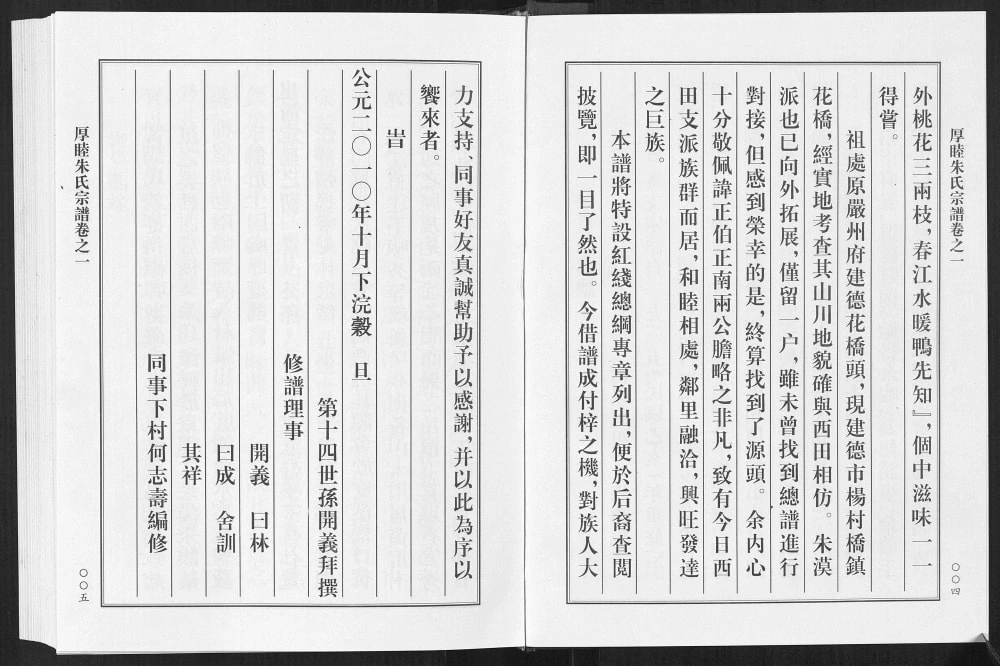 厚睦朱氏宗譜卷之一
〇〇四
外桃花三兩枝，春江水暖鴨先知』，個中滋味一一
得嘗。
祖處原嚴州府建德花橋頭，現建德市楊村橋鎮
花橋，經實地考查其山川地貌確與西田相仿。朱漠
派也已向外拓展，僅留一户，雖未曾找到總譜進行
對接，但感到榮幸的是，終算找到了源頭。余内心
十分敬佩諱正伯正南兩公膽略之非凡，致有今日西
田支派族群而居，和睦相處，鄰里融洽，興旺發達
之巨族。
本譜將特設紅綫總綱專章列出，便於后裔查閲
披覽，即一目了然也。今借譜成付梓之機，對族人大
力支持、同事好友真誠幫助予以感謝，并以此為序以
饗來者。
旹
公元二〇一〇年十月下浣穀　旦
第十四世孫開義拜撰
修譜理事
開義　曰林
曰成　舍訓
其祥
同事下村何志壽編修
厚睦朱氏宗譜卷之一
〇〇五